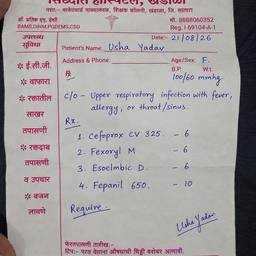 सिध्दांत हॉस्पिटल, खंडाळा
डॉ. प्रतिक एस. देशी
BAMS,DIHM,PGDEMS,CSD
मो. 8888060352
Reg. I-69104-A-1
उपलब्ध सुविधा
Date:- 21/08/26
Patient's Name: Usha Yadav
Address & Phone:
Age/Sex: F.
B.P. Wt.
100/60 mmhg
℞
* ई.सी.जी.
* वाफारा
* रक्तातील साखर तपासणी
* रक्तदाब तपासणी व उपचार
* वजन लावणे
c/o - Upper respiratory infection with fever,
allergy, or throat/sinus.
Rx.
1. Cefoprox CV 325. - 6
2. Fexoryl M - 6
3. Esoelmbic D. - 6
4. Fepanil 650. - 10
Require
Usha Yadav
फेरतपासणी तारीख:-
टिप:- परत येताना औषधाची चिठ्ठी बरोबर आणावी.